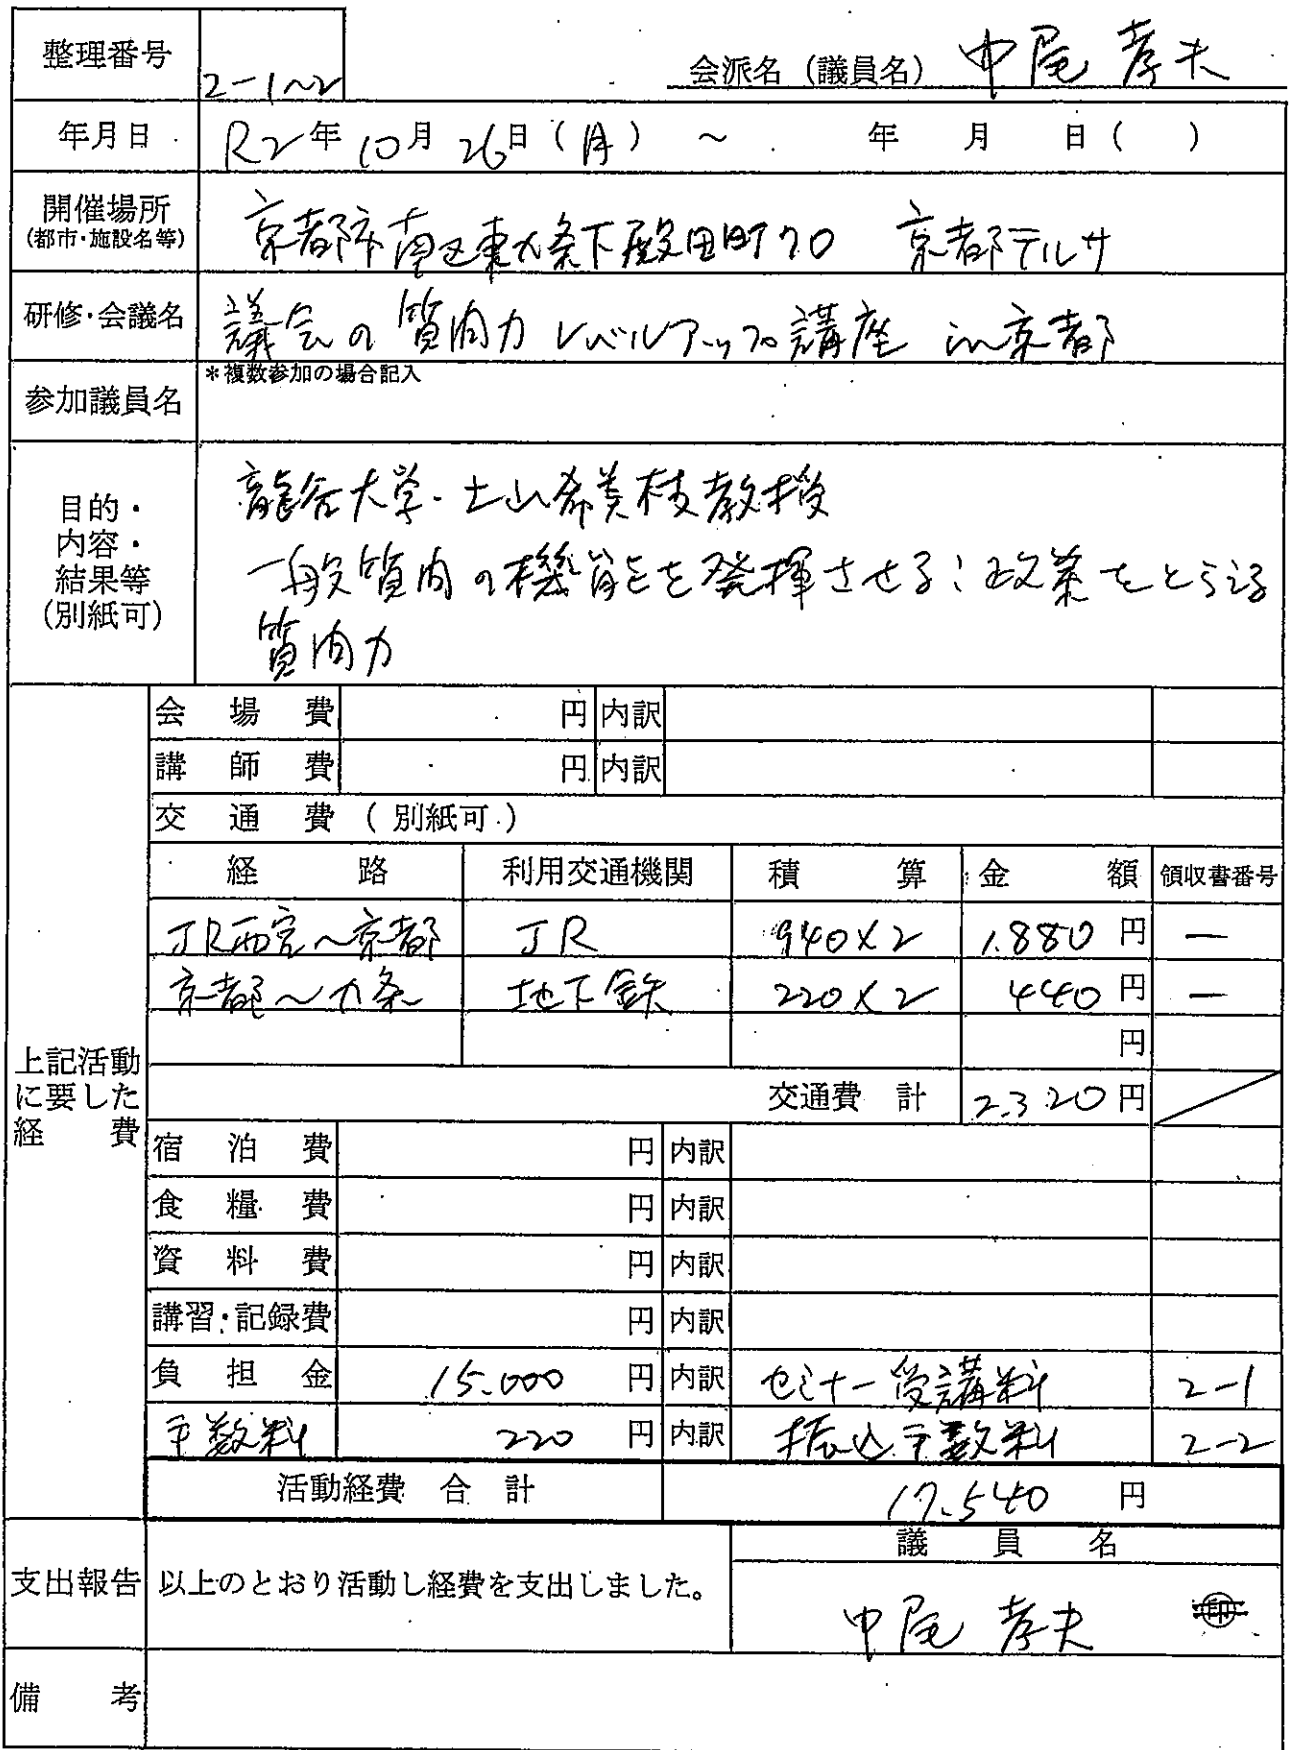 整理番号 2-1~2 会派名 (議員名) 中尾 孝夫
年月日 R2年10月26日(月) ～ 年 月 日( )
開催場所 京都市南区東九条下殿田町70 京都テルサ
(都市・施設名等)
研修・会議名 議会の質問力レベルアップ講座 in京都
参加議員名 *複数参加の場合記入
目的・ 龍谷大学・土山希美枝教授
内容・ 一般質問の機能を発揮させる:政策をとらえる
結果等 質問力
(別紙可)
上記活動
に要した
経費
会場費 円 内訳
講師費 円 内訳
交通費 (別紙可)
経路 利用交通機関 積算 金額 領収書番号
JR西宮～京都 JR 940×2 1.880円 ー
京都～九条 地下鉄 220×2 440円 ー
円
交通費 計 2.320円
宿泊費 円 内訳
食糧費 円 内訳
資料費 円 内訳
講習・記録費 円 内訳
負担金 15.000円 内訳 セミナー受講料 2-1
手数料 220円 内訳 振込手数料 2-2
活動経費 合計 17.540円
支出報告 以上のとおり活動し経費を支出しました。
議員名
中尾 孝夫 印
備考